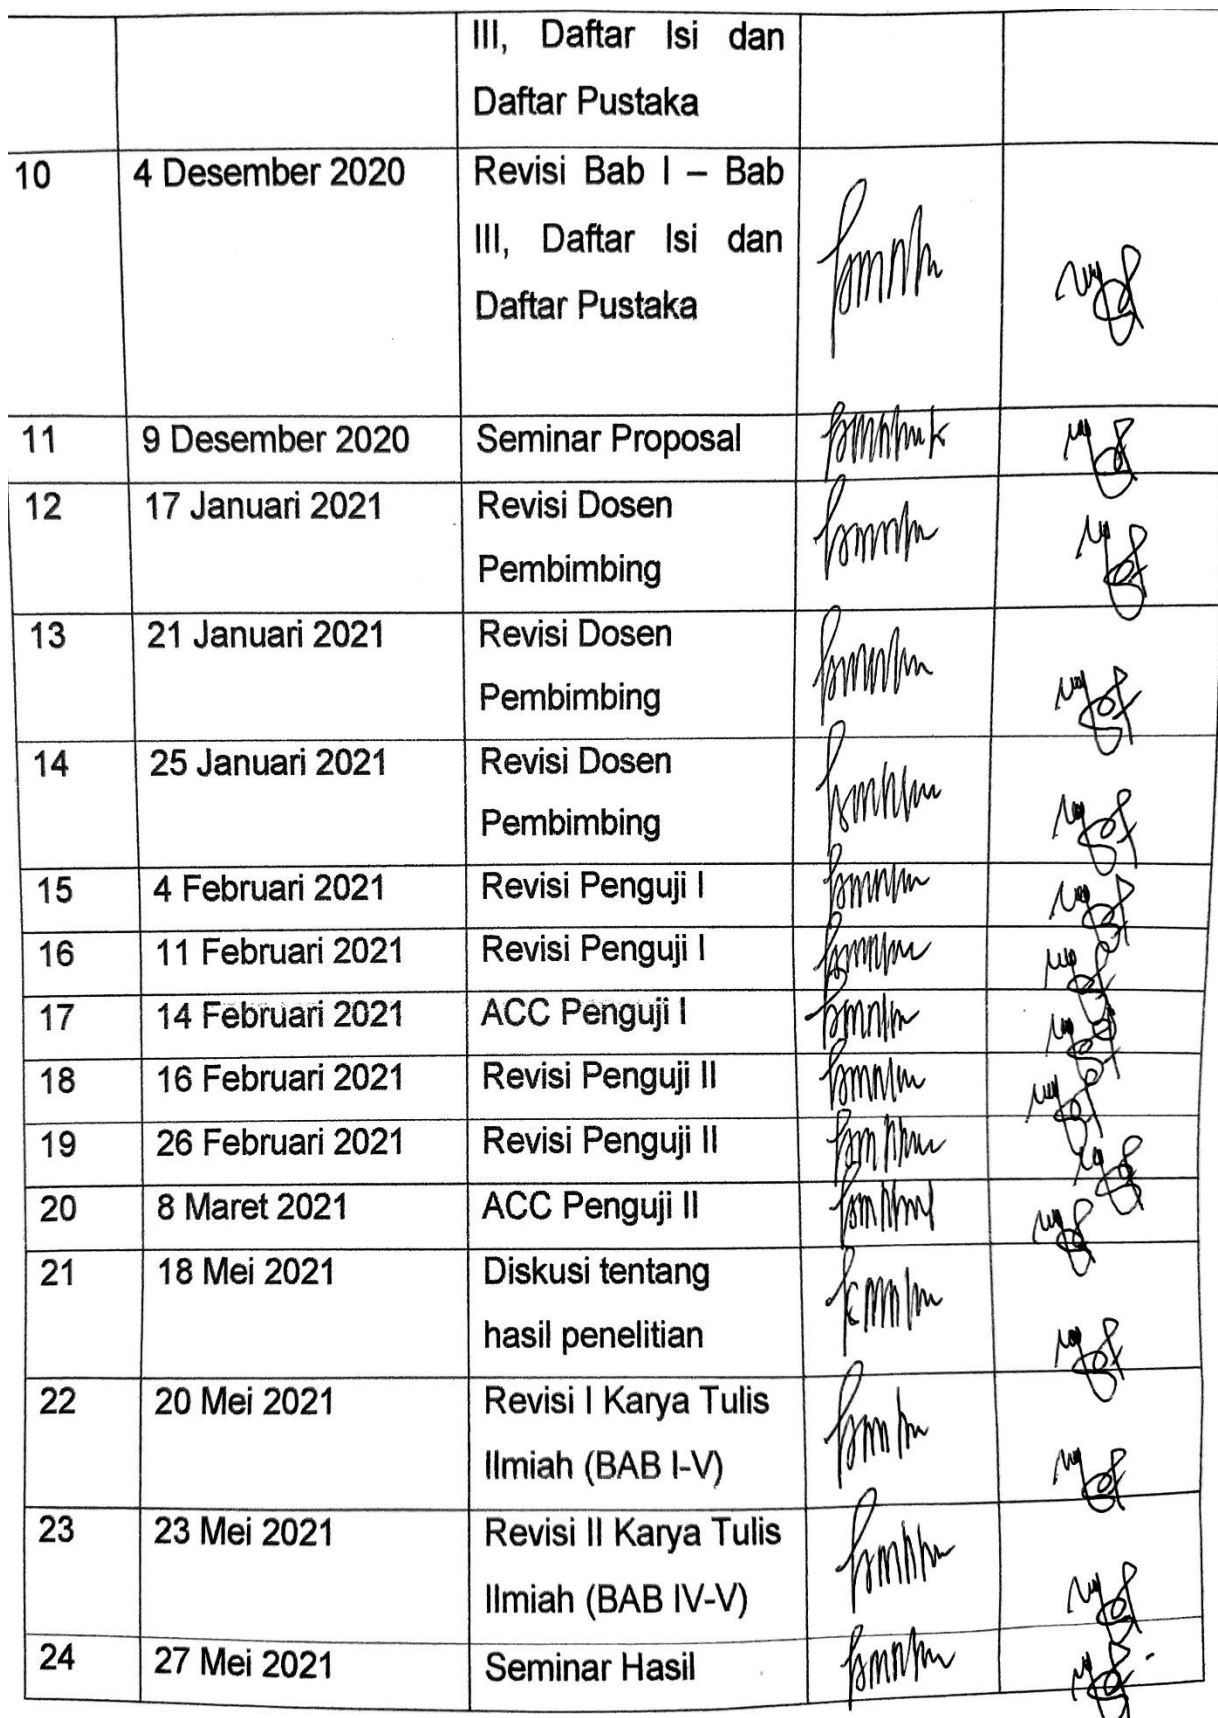 III, Daftar Isi dan
Daftar Pustaka
10 4 Desember 2020 Revisi Bab I – Bab
III, Daftar Isi dan
Daftar Pustaka
11 9 Desember 2020 Seminar Proposal
12 17 Januari 2021 Revisi Dosen
Pembimbing
13 21 Januari 2021 Revisi Dosen
Pembimbing
14 25 Januari 2021 Revisi Dosen
Pembimbing
15 4 Februari 2021 Revisi Penguji I
16 11 Februari 2021 Revisi Penguji I
17 14 Februari 2021 ACC Penguji I
18 16 Februari 2021 Revisi Penguji II
19 26 Februari 2021 Revisi Penguji II
20 8 Maret 2021 ACC Penguji II
21 18 Mei 2021 Diskusi tentang
hasil penelitian
22 20 Mei 2021 Revisi I Karya Tulis
Ilmiah (BAB I-V)
23 23 Mei 2021 Revisi II Karya Tulis
Ilmiah (BAB IV-V)
24 27 Mei 2021 Seminar Hasil